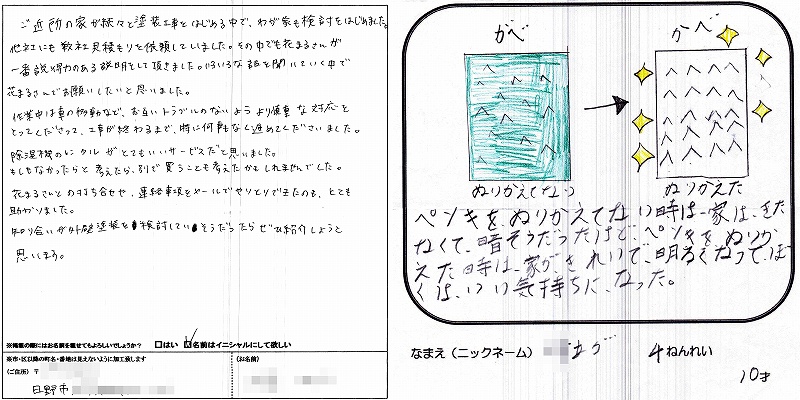 ご近所の家が続々と塗装工事をはじめる中で、わが家も検討をはじめました。
他社にも数社見積もりを依頼していました。その中でも花まるさんが
一番説得力のある説明をして頂きました。いろいろな話を聞いていく中で
花まるさんでお願いしたいと思いました。
作業中は車の移動など、お互いトラブルのないようより慎重な対応を
とってくださって、工事が終わるまで、特に何事もなく進めてくださいました。
除湿機のレンタルがとてもいいサービスだと思いました。
もしもなかったらと考えたら、別で買うことも考えたかもしれませんでした。
花まるさんとの打ち合せや、連絡事項をメールでやりとりできたのも、とても
助かりました。
知り合いが外壁塗装を検討していそうだったらぜひ紹介しようと
思います。
※掲載の際にはお名前を載せてもよろしいでしょうか? □はい ☑名前はイニシャルにして欲しい
※市・区以降の町名・番地は見えないように加工致します
(ご住所) 〒
日野市
(お名前)
かべ
かべ
ぬりかえてない
ぬりかえた
ペンキをぬりかえてない時は、家は、きた
なくて、暗そうだったけど、ペンキをぬりか
えた時は、家がきれいで、明るくなって、ぼ
くは、いい気持ちに、なった。
なまえ(ニックネーム)
4ねんれい
10才